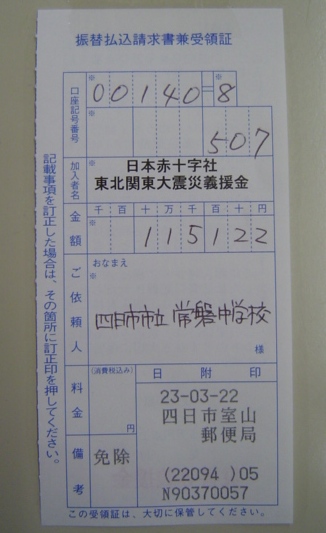 振替払込請求書兼受領証
口座記号番号
※ 00140=※8
※ 507
加入者名
※ 日本赤十字社
東北関東大震災義援金
金額
千 百 十 万 千 百 十 円
※ 115122
ご依頼人
おなまえ
※
四日市市立 常磐中学校
様
料金
(消費税込み)
円
備考
免除
日附印
23-03-22
四日市室山
郵便局
(22094 )05
N90370057
この受領証は、大切に保管してください。
記載事項を訂正した場合は、その箇所に訂正印を押してください。